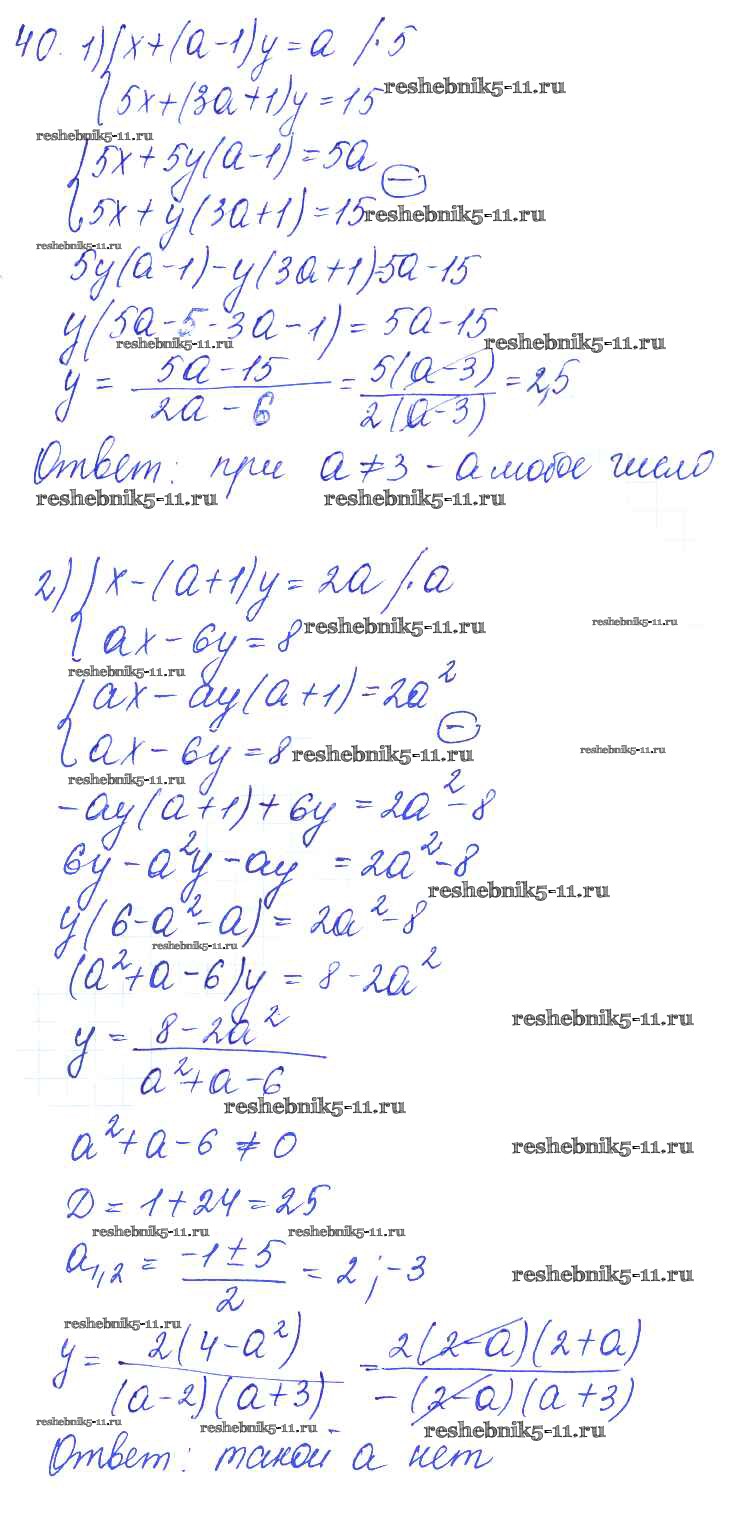 40. 1) { x + (a-1)y = a /·5
5x + (3a+1)y = 15 reshebnik5-11.ru
reshebnik5-11.ru
{ 5x + 5y(a-1) = 5a
5x + y(3a+1) = 15 (-) reshebnik5-11.ru
reshebnik5-11.ru
5y(a-1) - y(3a+1) = 5a - 15
y(5a - 5 - 3a - 1) = 5a - 15
reshebnik5-11.ru reshebnik5-11.ru
y = (5a - 15)/(2a - 6) = 5(a-3)/2(a-3) = 2,5
Ответ: при a ≠ 3 - a любое число
reshebnik5-11.ru reshebnik5-11.ru
2) { x - (a+1)y = 2a /·a
ax - 6y = 8 reshebnik5-11.ru reshebnik5-11.ru
reshebnik5-11.ru
{ ax - ay(a+1) = 2a²
ax - 6y = 8 (-) reshebnik5-11.ru reshebnik5-11.ru
reshebnik5-11.ru
-ay(a+1) + 6y = 2a² - 8
6y - a²y - ay = 2a² - 8
reshebnik5-11.ru
y(6 - a² - a) = 2a² - 8
reshebnik5-11.ru
(a² + a - 6)y = 8 - 2a²
reshebnik5-11.ru
y = (8 - 2a²)/(a² + a - 6)
reshebnik5-11.ru
a² + a - 6 ≠ 0 reshebnik5-11.ru
D = 1 + 24 = 25
reshebnik5-11.ru reshebnik5-11.ru
a₁,₂ = (-1 ± 5)/2 = 2; -3 reshebnik5-11.ru
reshebnik5-11.ru
y = 2(4 - a²)/(a-2)(a+3) = 2(2-a)(2+a)/-(2-a)(a+3)
reshebnik5-11.ru reshebnik5-11.ru reshebnik5-11.ru
Ответ: такой a нет